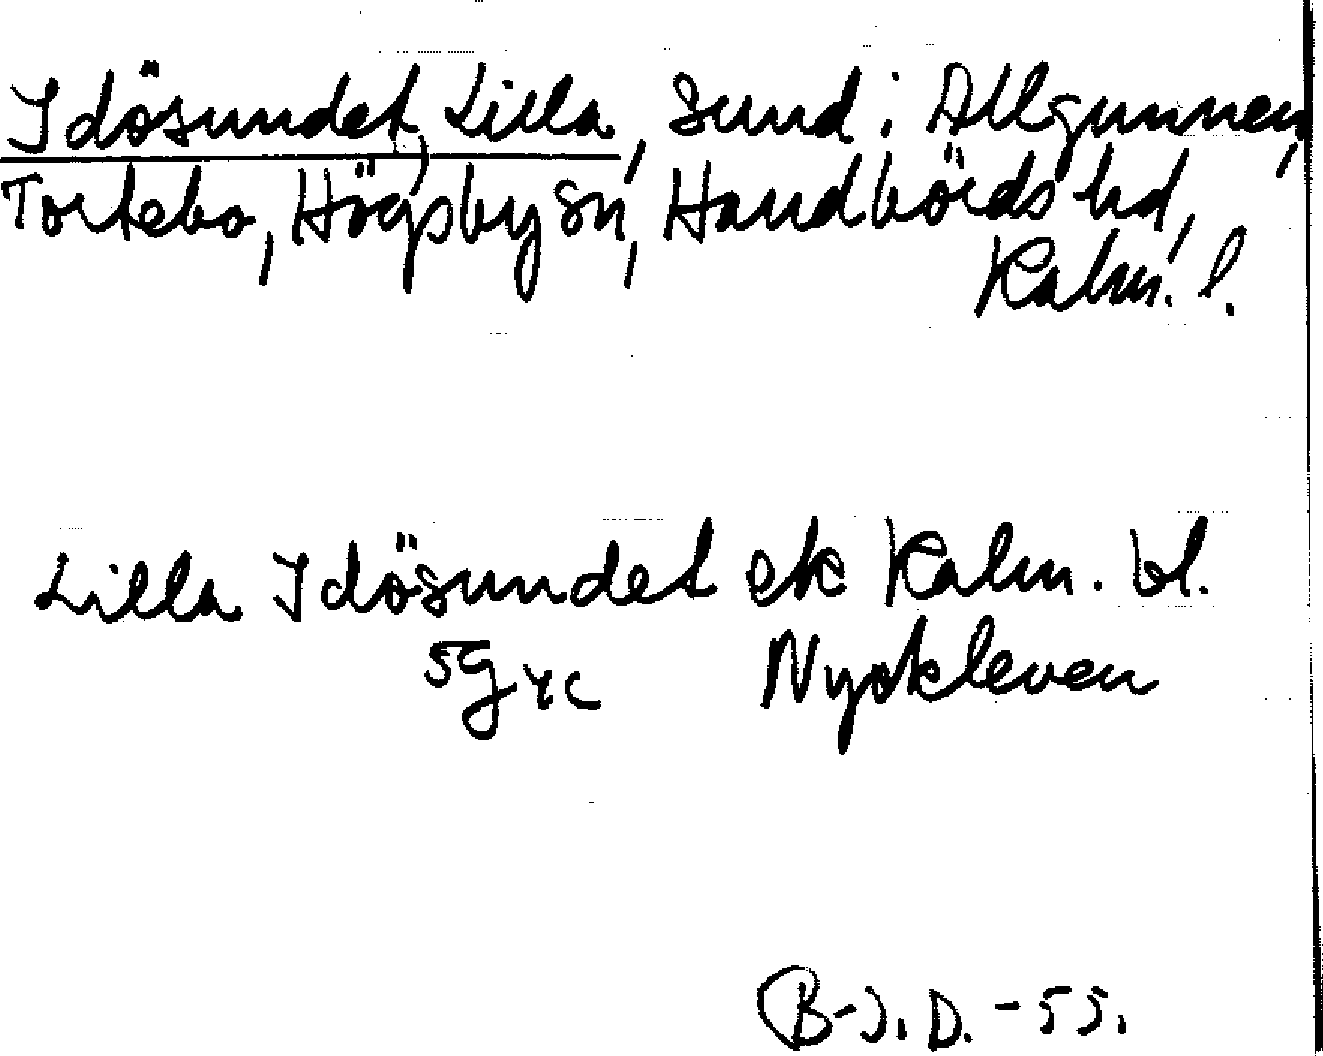 Idösundet, Lilla, sund i Allgunnen,
Tortebo, Högsby sn, Handbörds hd,
Kalm. l.
Lilla Idösundet ek Kalm. bl.
5G 4c Nyckleven
B-J. D. -55.